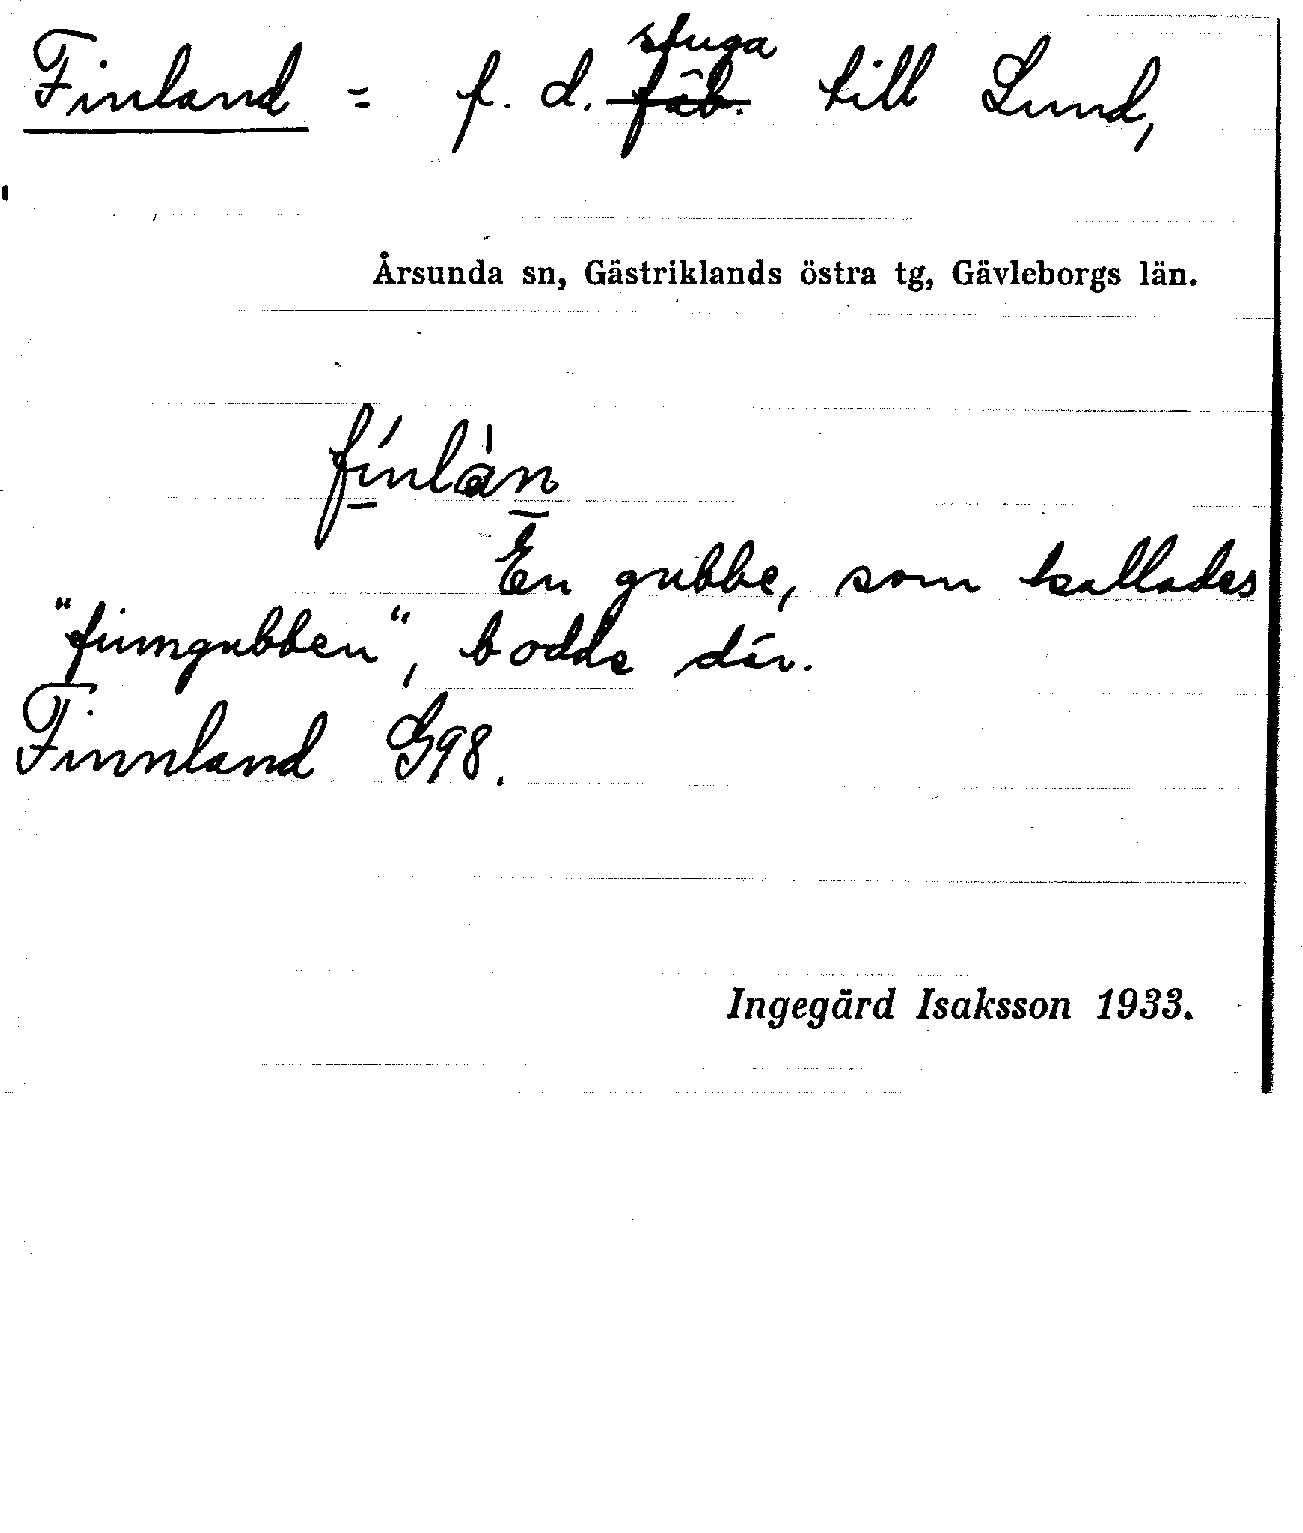 Finland = f. d. ~~fäb.~~ stuga till Lund,
Årsunda sn, Gästriklands östra tg, Gävleborgs län.
fí̲nlàn̲
En gubbe, som kallades
"finngubben", bodde där.
Finnland G98.
Ingegärd Isaksson 1933.